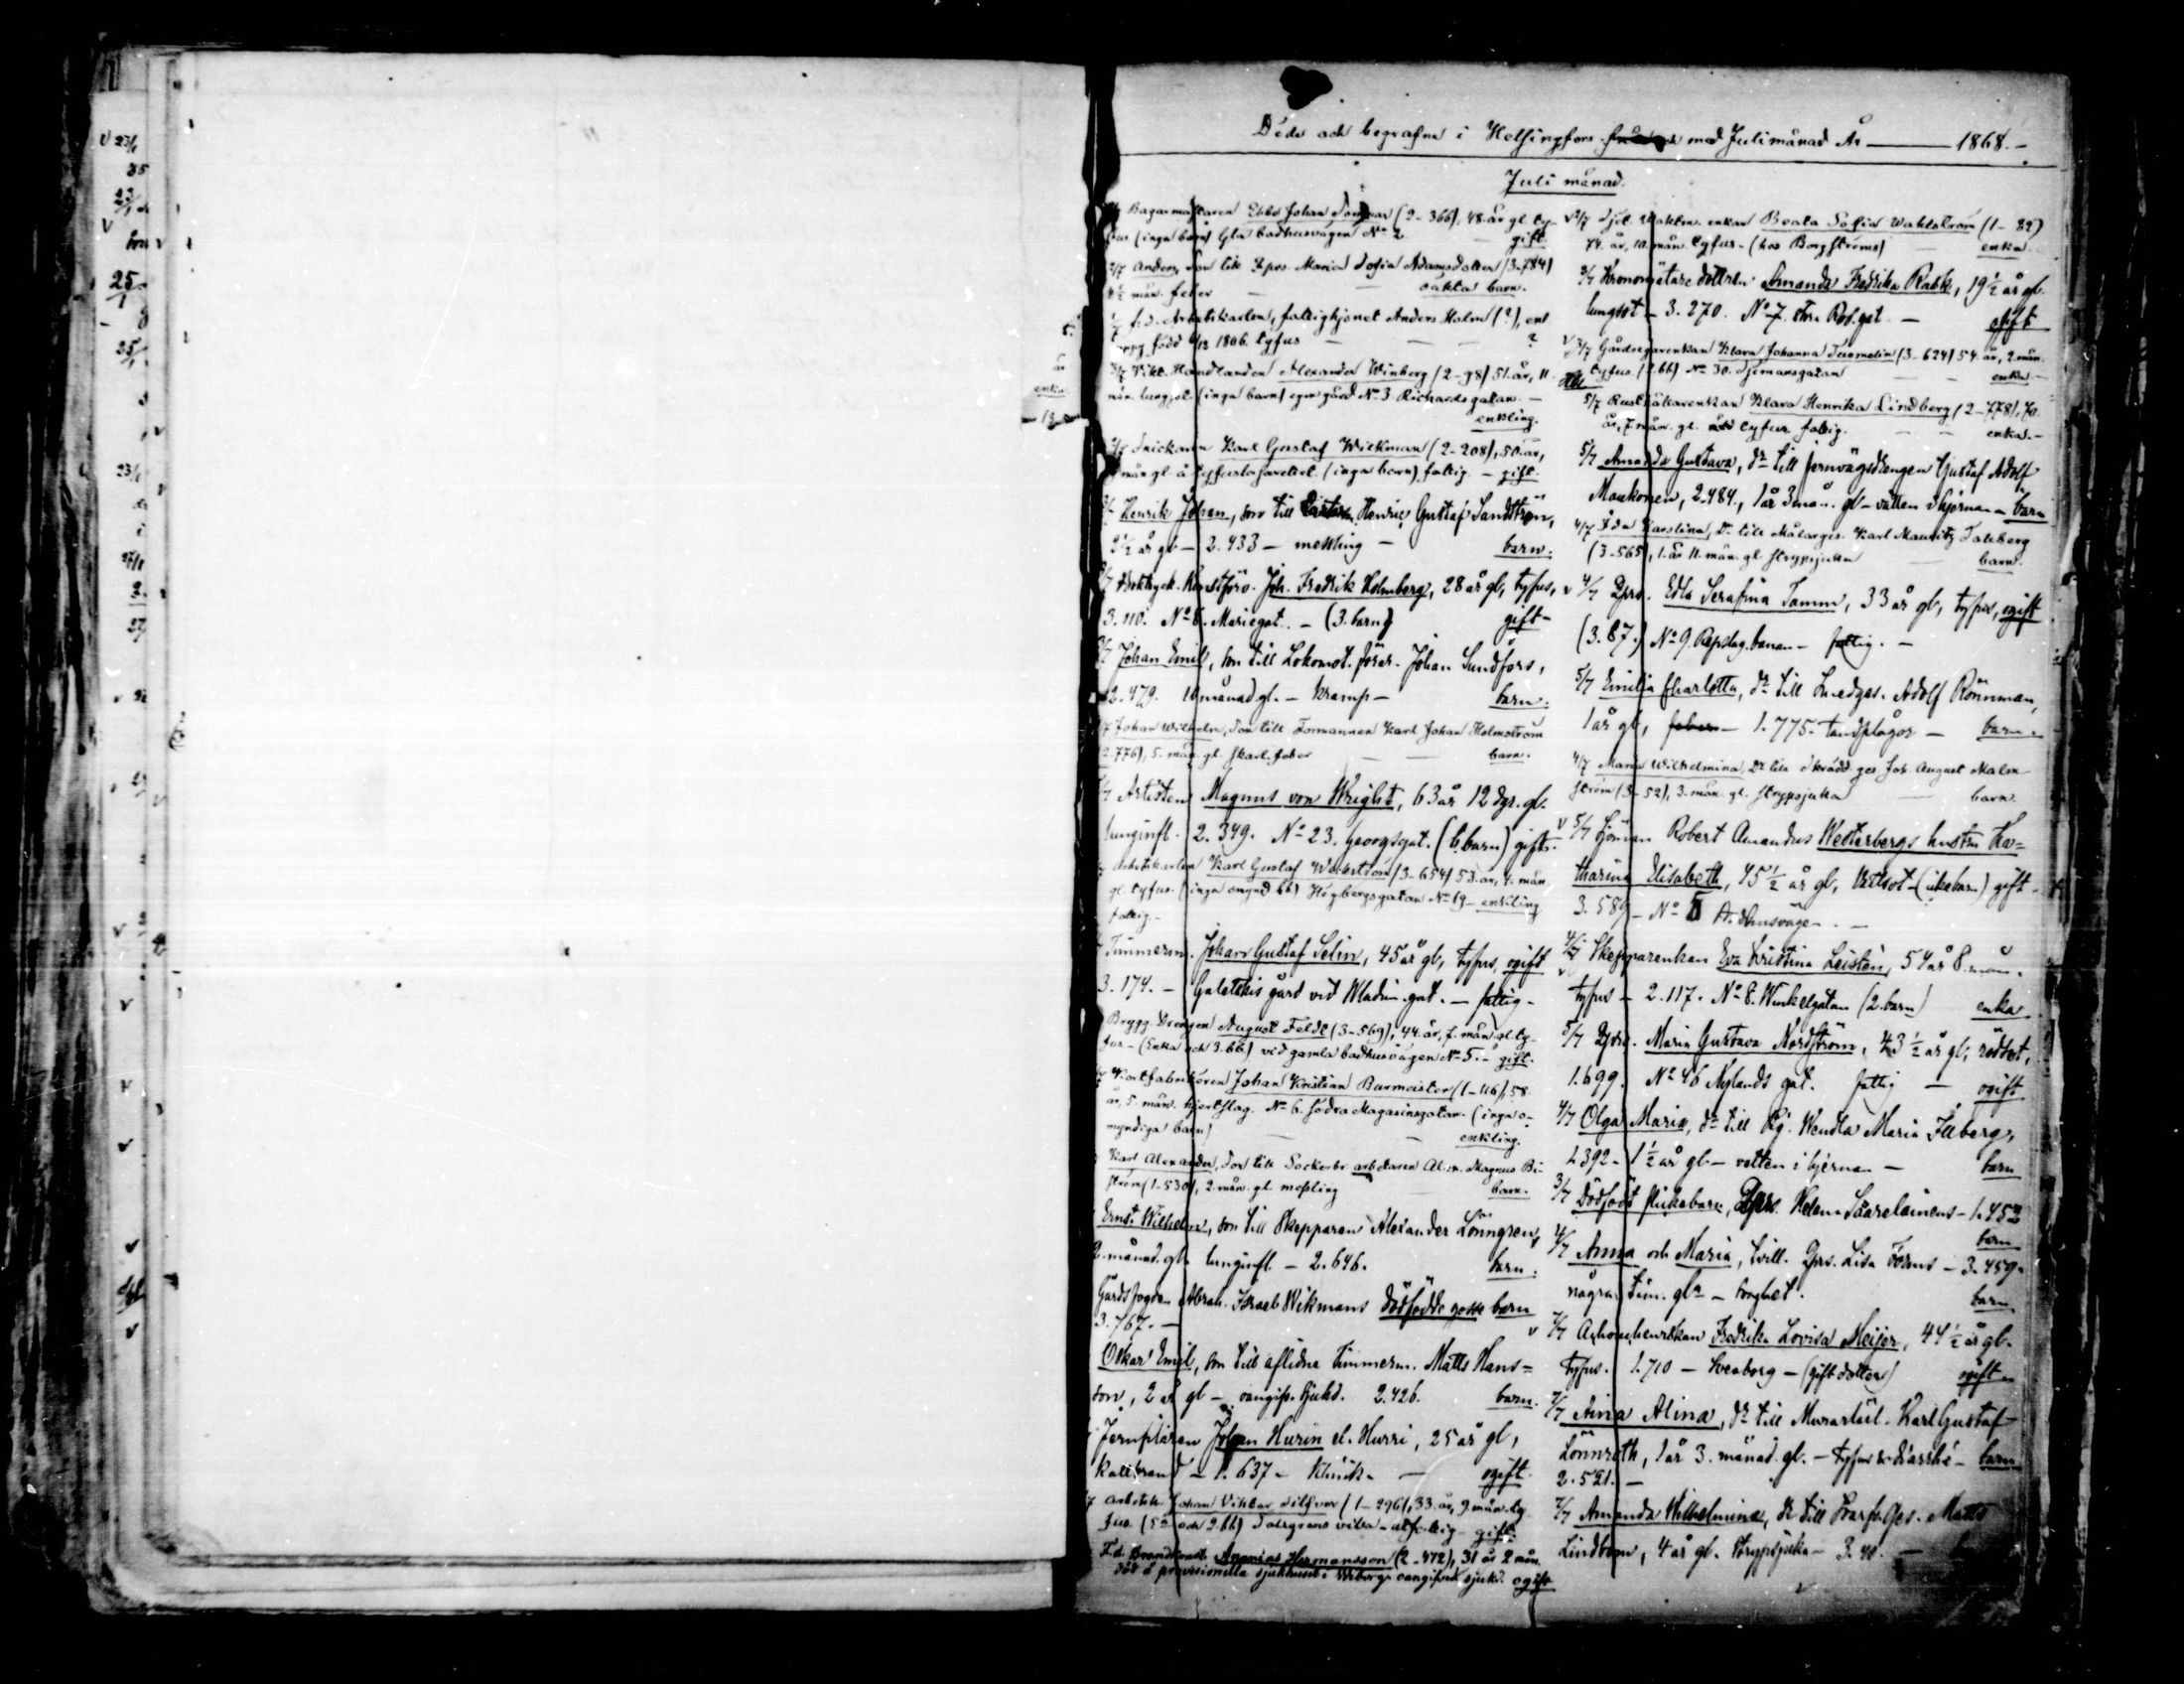 Döde och begrafne i Helsingfors med Julimånad År 1868.-
Juli månad.
Bagarmästaren Ebbe Johan (2-366), 48 år gl ty-
fus (inga barn) Gla badhusvägen No 2 gift
2/7 Anders, son till Pigs. Maria Sofia Adamsdotter (3-784)
1/2 mån. feber oäkta barn.
f.d. Arbetskarlen, fattighjonet Anders Holm (?), enl.
född 6/12 1806. tyfus ?
3/7 Vikt. Handlanden Alexander Winberg (2-98) 51 år, 11.
mån. lungsot. (inga barn) egen gård No 3 Richardsgatan. -
enkling.
Snickaren Karl Gustaf Wilkman (2-208), 50 år,
mån gl å tyfuslasarettet. (inga barn) fattig - gift.
Henrik Johan, son till Henric Gustaf Sandström,
2 1/2 år gl - 2.433 - messling - barn.
Boktryck. Konstförv. Joh. Fredrik Holmberg, 28 år gl, tyfus,
3.110. No 8. Mariegat. - (3. barn) gift-
Johan Emil, son till Lokomot. förar. Johan Sundfors,
2.479. 10 månad gl. - kramp - barn.
Johan Wilhelm, son till Formannen Karl Johan Holmström
(2.776), 5. mån. gl. skarl. feber barn.
Artisten Magnus von Wright, 63 år 12 dgr. gl.
lunginfl. 2.349. No 23. Georgsgat. (barn) gift.
Arbetskarlen Karl Gustaf Weckström (3-654) 53. år, 4. mån
gl. tyfus. (inga omynd. bb) Högbergsgatan No 19 - enkling
fattig.-
Timmerm. Johan Gustaf Selin, 45 år gl, tyfus, ogift
3.174. - Galetskis gård vid Wladim. gat. - fattig -
Brygg. Drengen August Feldt (3-569), 44. år, 7. mån gl. ty-
fus - (Enka och 3. bb.) vid gamla badhusvägen No 5.- gift.
Kortfabrikören Johan Kristian Burmeister (1-116), 58
år, 5. mån. hjertslag. No 6. Södra Magasinsgatan. (inga o-
myndiga barn) enkling.
Karl Alexander, son till Sockerbr. arbetaren Alex. Magnus Bi-
ström (1-530), 2. mån. gl. messling barn.
Ernst Wilhelm, son till Skepparen Alexander Lönngren,
2. månad. gl. lunginfl. - 2.646. barn.
Gårdsfogden Abrah. Israel Wikmans dödfödde gosse barn
3.767. -
Oskar Emil, son till aflidne Timmerm. Matts Hans-
son, 2 år gl - oangifv. sjukd. 2.426. barn.
Jernfilaren Johan Hurin el. Hurri, 25 år gl,
kallbrand - 1.637 - Klinik. - ogift.
Arbetsk. Johan Viktor Silfver (1-296), 33. år, 9. mån. ty-
fus (Ea och 2. bb) Dalsgrens villa - utfattig - gift.
F.d. Brandsoldt. Ananias Hermansson (2-472), 31 år 2 mån.
död å provisionella sjukhuset i Wiborg, oangifven sjukd. ogift
v 2/7 Sjöl. Waktm. enkan Beata Sofia Wahlström (1-82)
74. år, 10. mån. tyfus - (hos Borgströms) enka.
3/7 Kronomjätare dottern Amanda Fredrika Rabb, 19 1/2 år gl.
lungsot - 3.270. No 7. stra Rob.gat. - ogift
v 3/7 Gårdsegarenkan Klara Johanna (3-624) 54. år, 2. mån.
tyfus. (bb) No 30. Sjömansgatan enka.-
5/7 Rusthållarenkan Klara Henrika Lindberg (2-778), 70
år, 7. mån. gl. tyfus fattig. enka.-
5/7 Amanda Gustava, dr till Jernvägsdrengen Gustaf Adolf
Maukonen, 2.484., 1 år 3 mån. gl - vatten i hjernan - barn
4/7 Ida Karolina, Dr till Målarges. Karl Mauritz Falkberg
(3-565), 1. år 11. mån. gl. strypsjuka barn.
v 4/7 Pigs. Edla Serafina Tamm, 33 år gl, tyfus, ogift
(3.87.) No 9. Repslag.banan - fattig. -
5/7 Emilia Charlotta, dr till Smedges. Adolf Rönnman,
1 år gl, - 1.775. tandplågor - barn.
4/7 Maria Wilhelmina, Dr till Skrädd. ges. Joh. August Malm-
ström (3-52), 3. mån. gl. strypsjuka barn.
v 5/7 Sjöman Robert Amandus Westerbergs hustru Ka-
tharina Elisabeth, 45 1/2 år gl, vattsot - (icke barn) gift -
3.589 - No 5 Badhusvägen. -
4/7 Skepparenkan Eva Kristina Leistén, 54 år 8. mån.
tyfus - 2.117. No 8. Winkelgatan (2. barn) enka
5/7 Pigs. Maria Gustava Nordström, 43 1/2 år gl, rödsot,
1.699. No 46 Nylands gat. fattig - ogift
4/7 Olga Maria, dr till Pig. Wendla Maria Illberg,
2.392 - 1 1/2 år gl - vatten i hjernan - barn
3/7 Dödfödt flickebarn, Pigs. Helena Saarelainens - 1.452
barn
4/7 Anna och Maria, tvill. Pigs. Lisa Törns - 3.459.
några tim. gla - svaghet. barn
v 7/7 Fredrika Lovisa Meijer, 44 1/2 år gl.
tyfus. 1.710 - Sveaborg - (gift dotter) ogift -
7/7 Aina Alina, dr till Murarlärl. Karl Gustaf
Lönnroth, 1 år 3. månad. gl. - tyfus & diarrhé - barn
2.521. -
7/7 Amanda Wilhelmina, dr till Svarfv. Ges. Matts
Lindbom, 4 år gl. Strypsjuka - 3.40. -